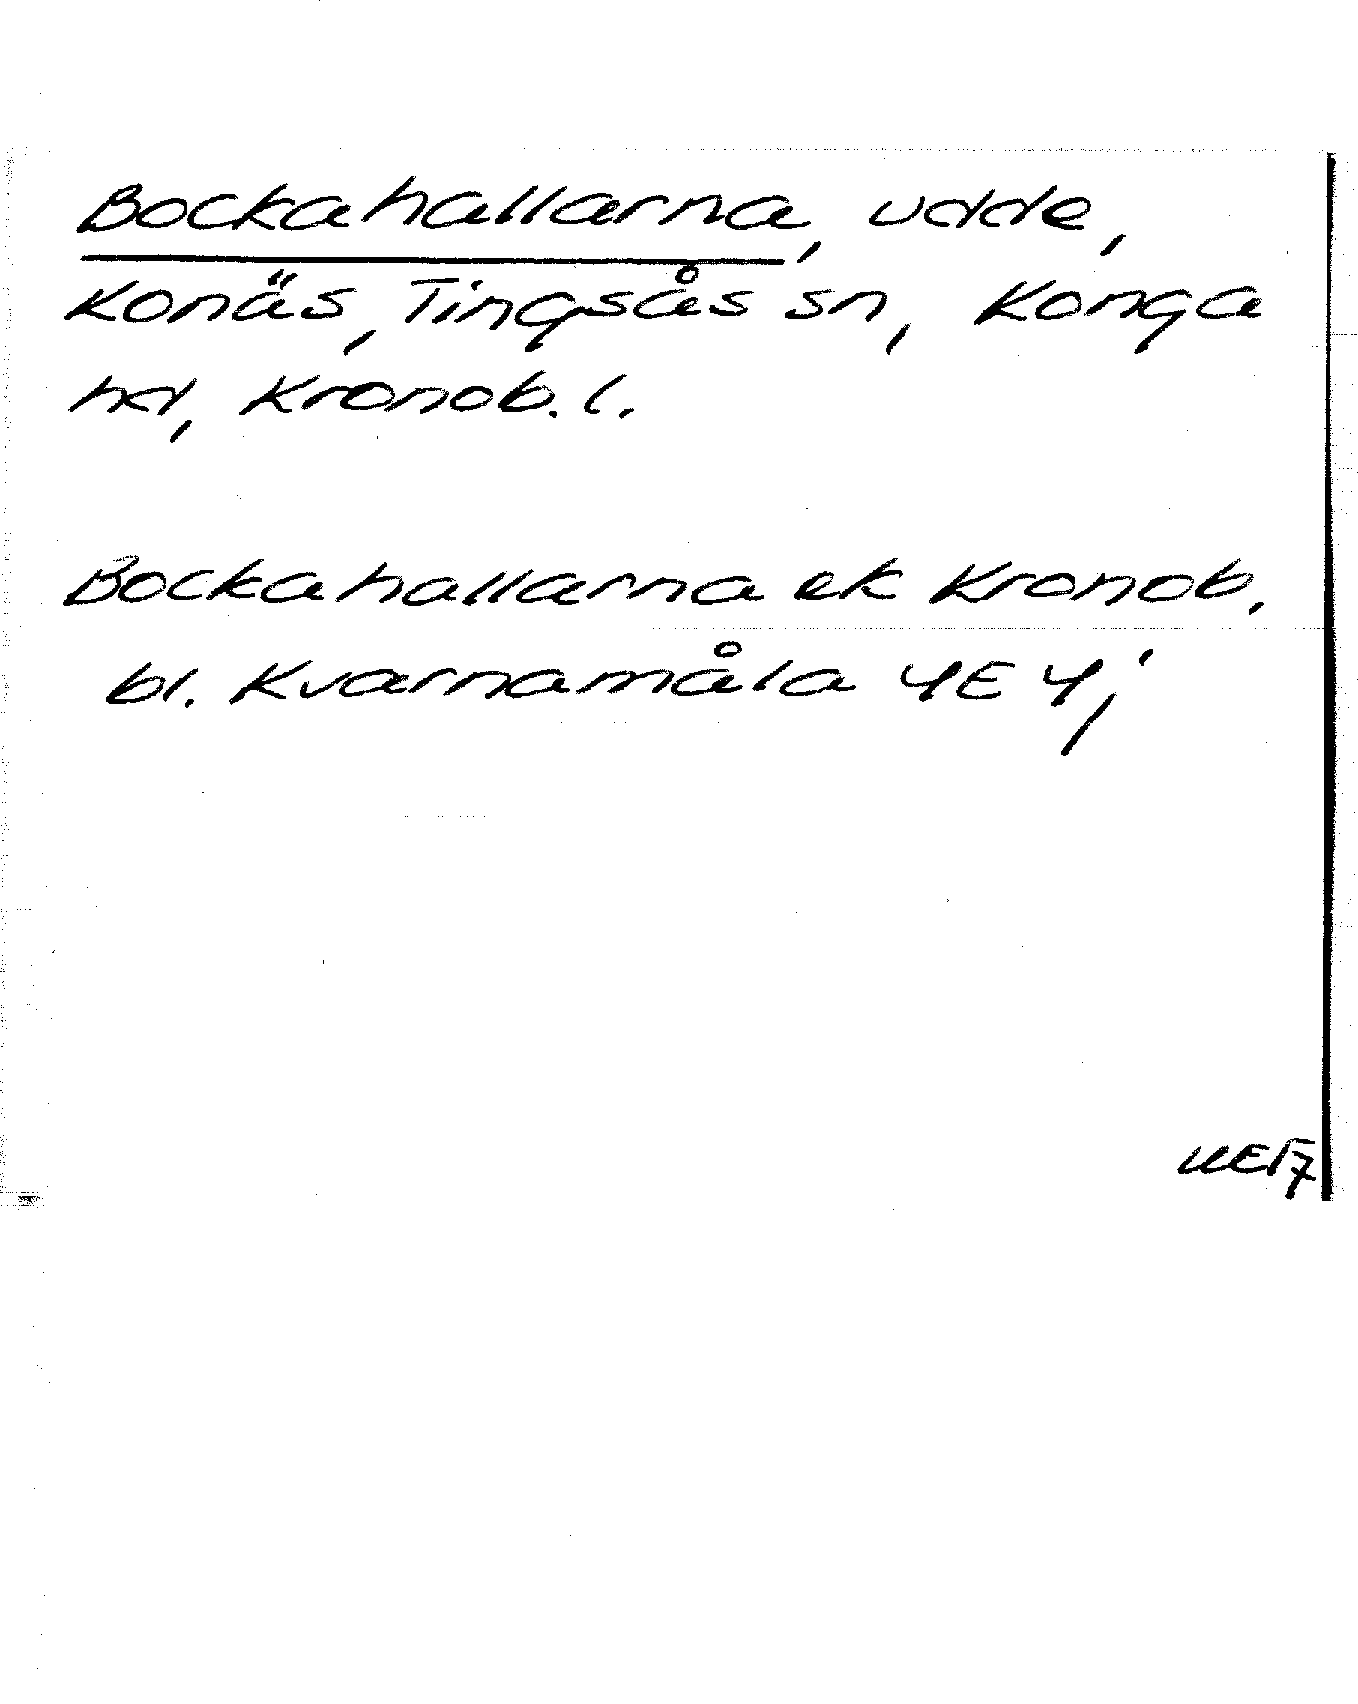 Bockahallarna, udde,
Konäs, Tingsås sn, Konga
hd, Kronob. l.
Bockahallarna ek Kronob.
bl. Kvarnamåla 4E 4j